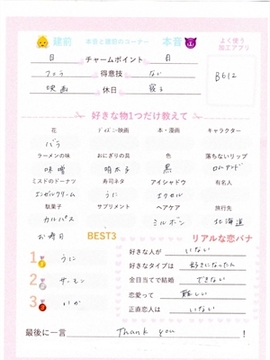 建前 本音と建前のコーナー 本音 よく使う加工アプリ
目 チャームポイント 目 B612
得意技 ない
映画 休日 寝る
好きな物1つだけ教えて
花 ドメホン映画 本・漫画 キャラクター
バラ
ラーメンの味 おにぎりの具 色 落ちないリップ
味噌 明太子 黒 ロムアンド
ミスドのドーナツ 寿司ネタ アイシャドウ 有名人
エンゼルクリーム うに エクセル
駄菓子 サプリメント ヘアケア 旅行先
カルパス ミルボン 北海道
お寿司 BEST3 リアルな恋バナ
1 うに 好きな人が いない
好きなタイプは 好きになった人
2 サーモン 全日当てで結婚 できない
恋愛って 難しい
3 いか 正直恋人は いない
最後に一言 Thank you !